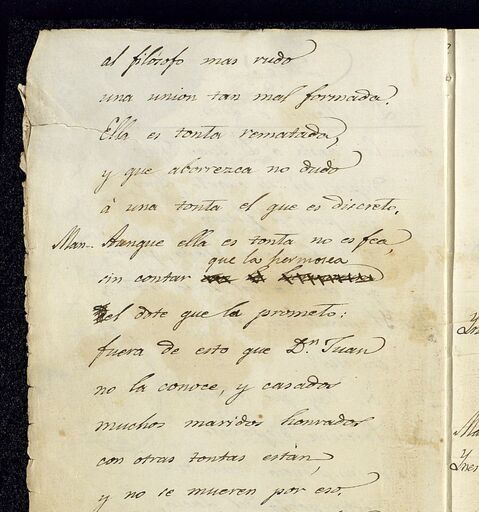 al filósofo mas rudo
una union tan mal formada.
Ella es tonta rematada,
y que aborrezca no dudo
à una tonta el que es discreto.
Man.. Aunque ella es tonta no es fea,
que la hermosea
sin contar
el dote que la prometo:
fuera de esto que Dn. Juan
no la conoce, y casados
muchos maridos honrados
con otras tontas están,
y no se mueren por eso.
Y
Ines
Ma
Y
Ines